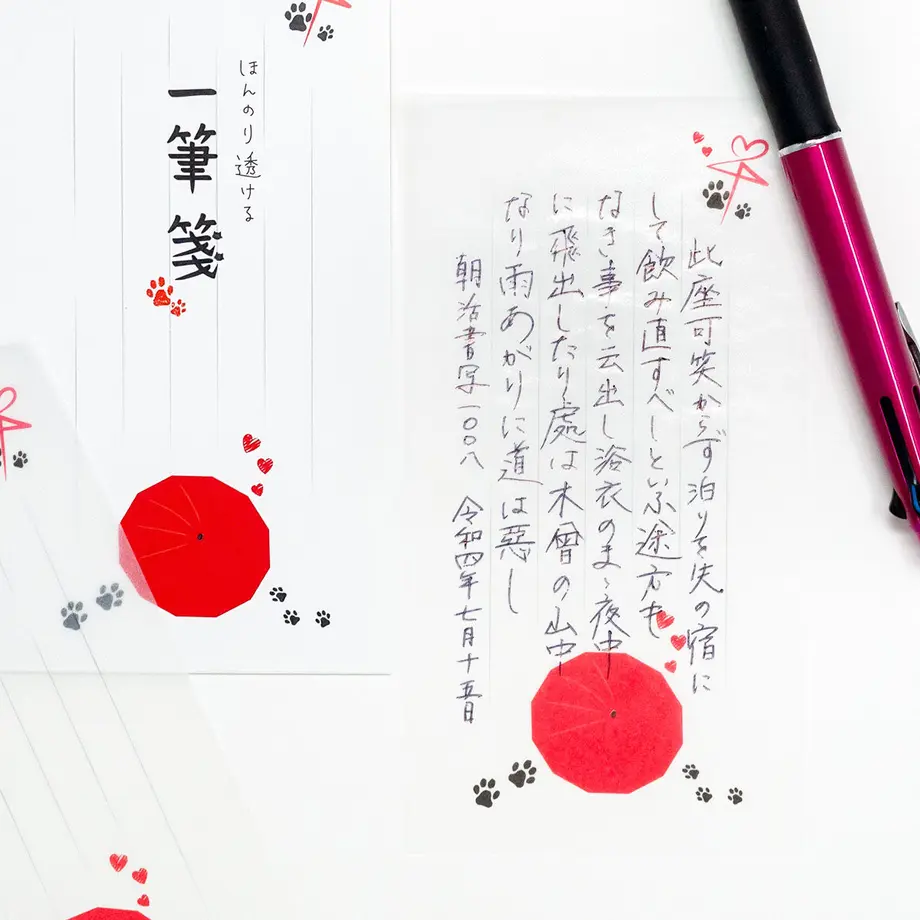 ほんのり透ける
一筆箋
此座可笑からず泊りを失の宿に
して飲み直すべしといふ途方も
なき事を云出し浴衣のまゝ夜中
に飛出したり處は木曾の山中
なり雨あがりに道は惡し
朝活書写一〇〇八 令和四年七月十五日